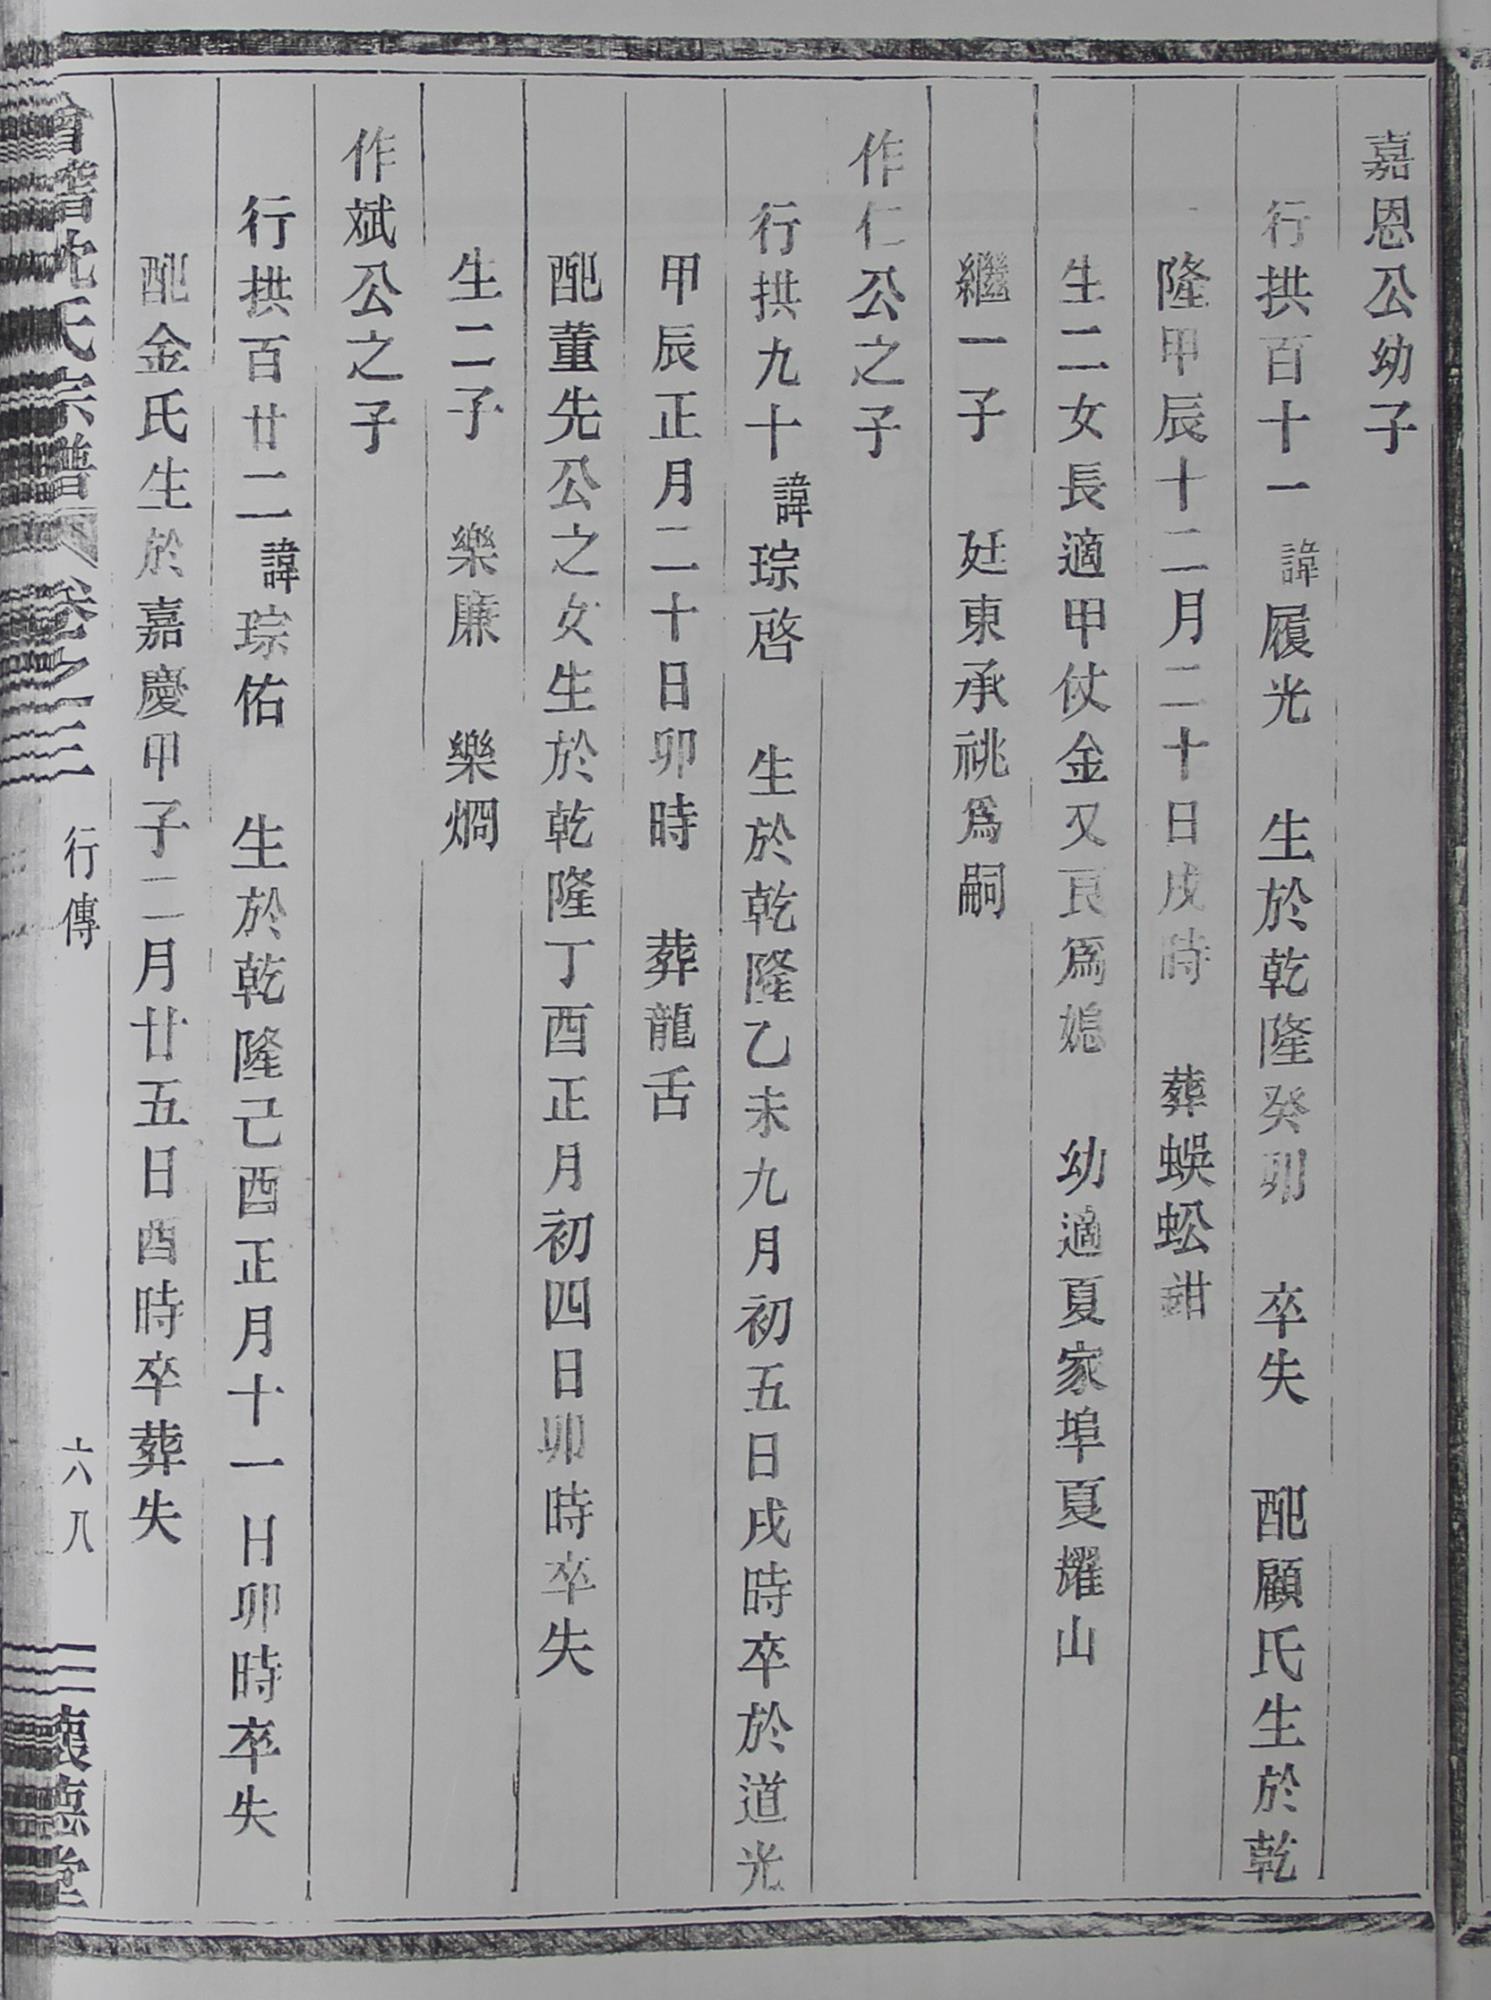 嘉恩公幼子
行拱百十一諱履光　生於乾隆癸卯　卒失　配顧氏生於乾
隆甲辰十二月二十日戌時　葬蜈蚣鉗
生二女長適甲仗金又良爲媳　幼適夏家埠夏耀山
繼一子　廷東承祧爲嗣
作仁公之子
行拱九十諱琮啓　生於乾隆乙未九月初五日戌時卒於道光
甲辰正月二十日卯時　葬龍舌
配董先公之女生於乾隆丁酉正月初四日卯時卒失
生二子　樂廉　樂燗
作斌公之子
行拱百廿二諱琮佑　生於乾隆己酉正月十一日卯時卒失
配金氏生於嘉慶甲子二月廿五日酉時卒葬失
會稽沈氏宗譜　卷之三　行傳　六八　懷德堂